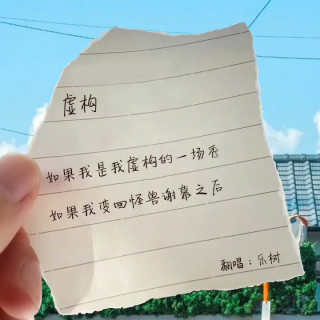 虚构
如果我是我虚构的一场秀
如果我变回怪兽谢幕之后
翻唱：乐树